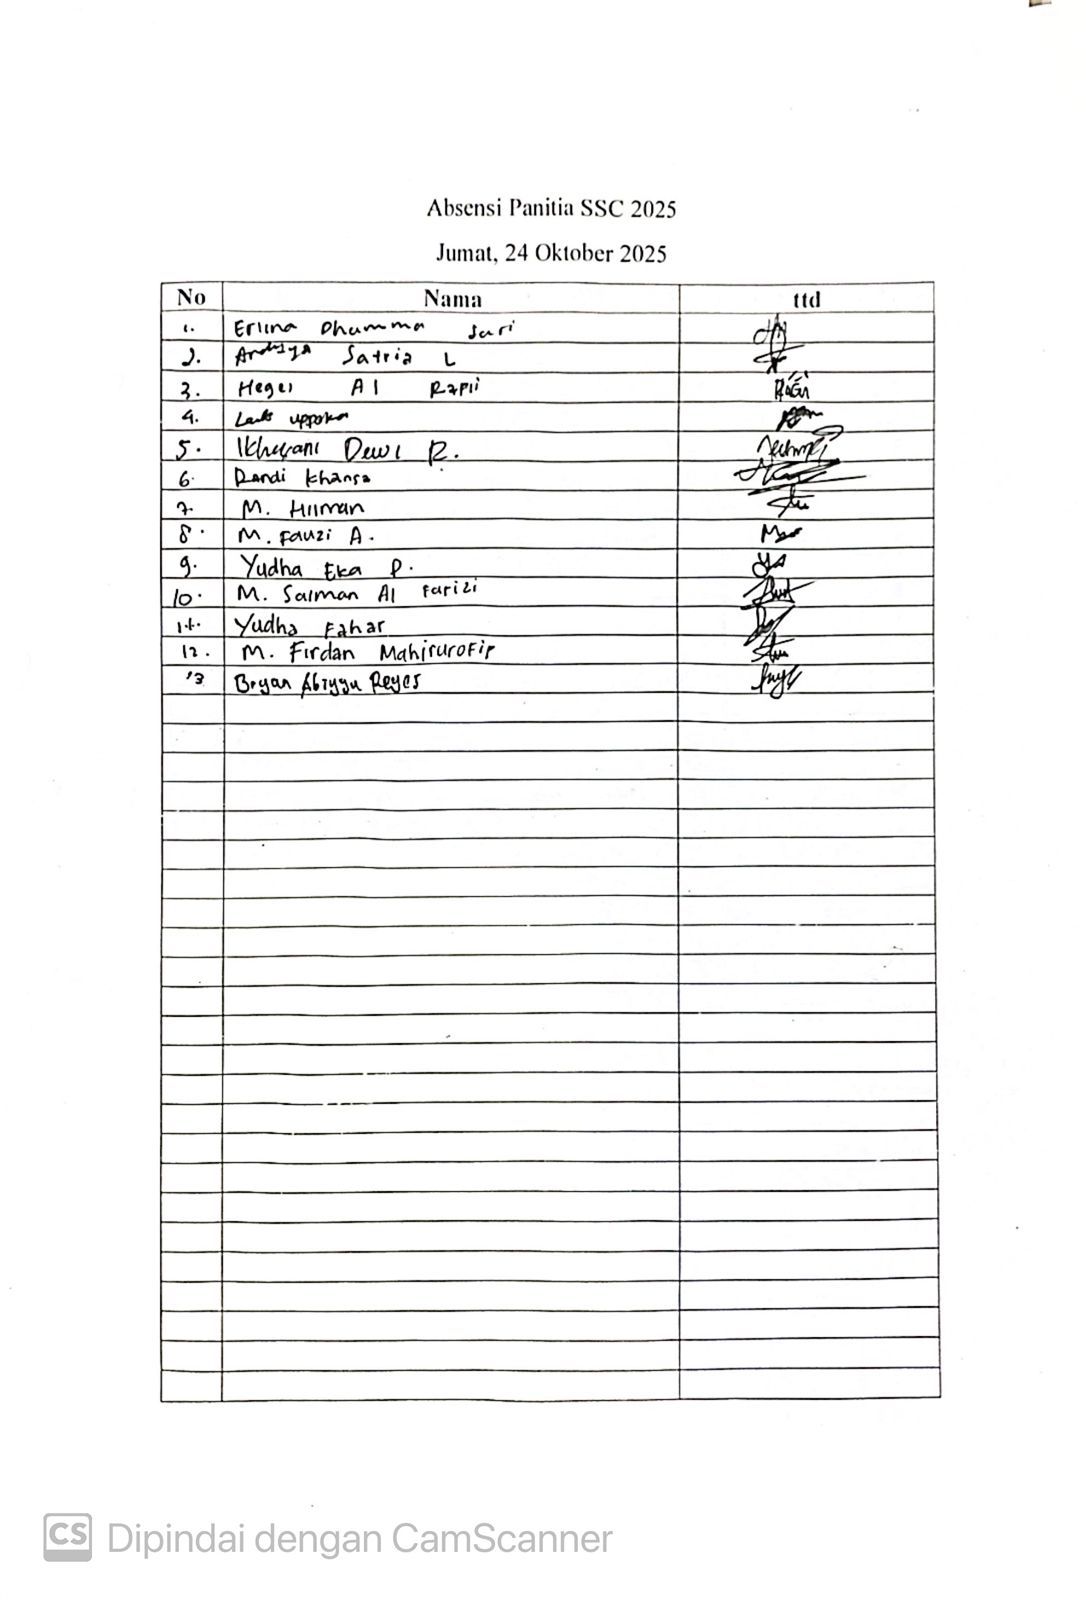 Absensi Panitia SSC 2025
Jumat, 24 Oktober 2025
No Nama ttd
1. Erlina Dhamma Sari
2. Satria L
3. Heger Al Rapii
4.
5. Dewi R.
6. Randi Khansa
7. M. Hilman
8. M. Fauzi A.
9. Yudha Eka P.
10. M. Salman Al Farizi
11. Yudha Fahar
12. M. Firdan
13 Bryan Abiyyu Reyes
CS Dipindai dengan CamScanner